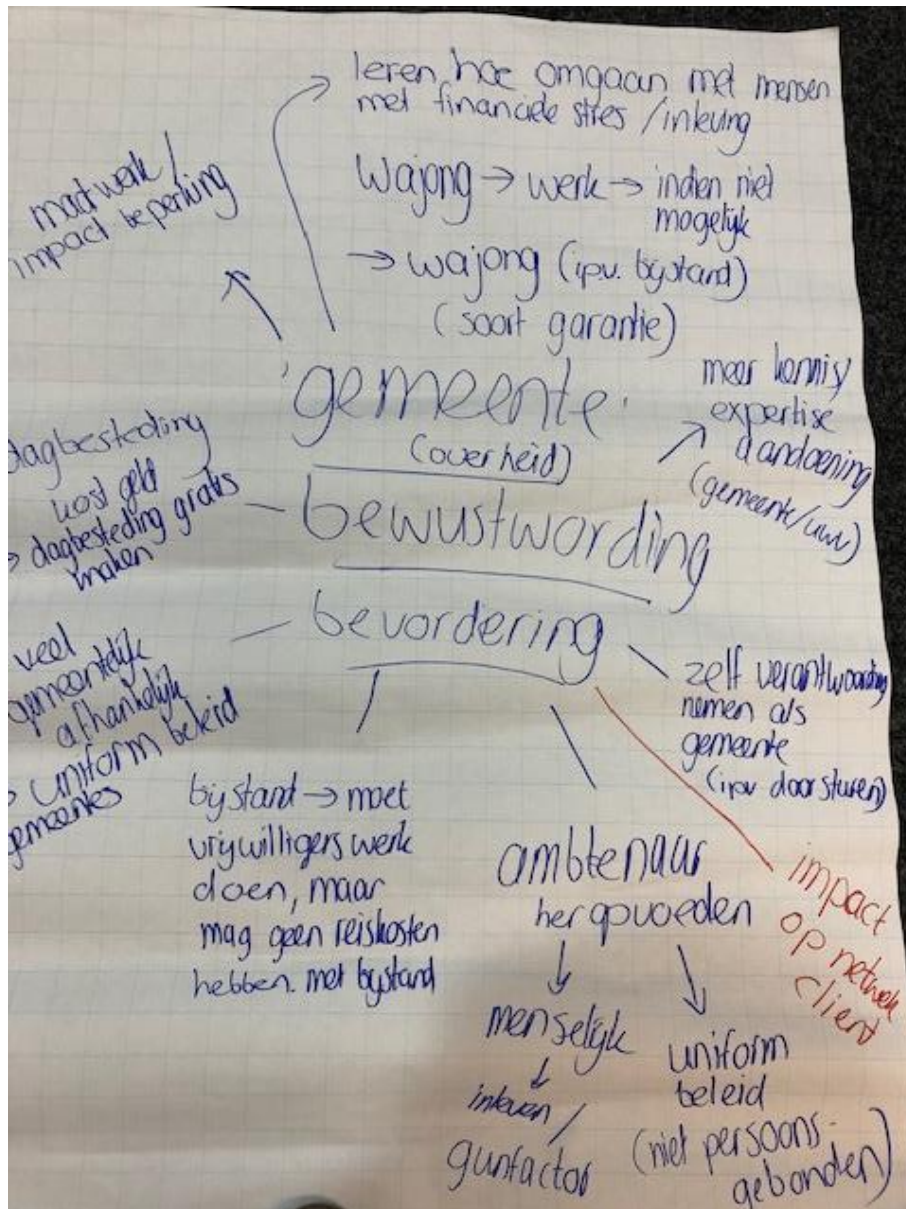 leren hoe omgaan met mensen
met financiele stres / inleving
maatwerk /
impact beperking
Wajong → werk → indien niet
mogelijk
→ wajong (ipv. bijstand)
(soort garantie)
gemeente
(overheid)
meer kennis/
expertise
aandoening
(gemeente/uwv)
dagbesteding
kost geld
→ dagbesteding gratis
maken
bewustwording
bevordering
veel
gemeentelijk
afhankelijk
→ uniform beleid
gemeentes
zelf verantwoording
nemen als
gemeente
(ipv doorsturen)
bijstand → moet
vrijwilligers werk
doen, maar
mag geen reiskosten
hebben. met bijstand
ambtenaar
heropvoeden
menselijk
inleven /
gunfactor
uniform
beleid
(niet persoons-
gebonden)
impact
op netwerk
client